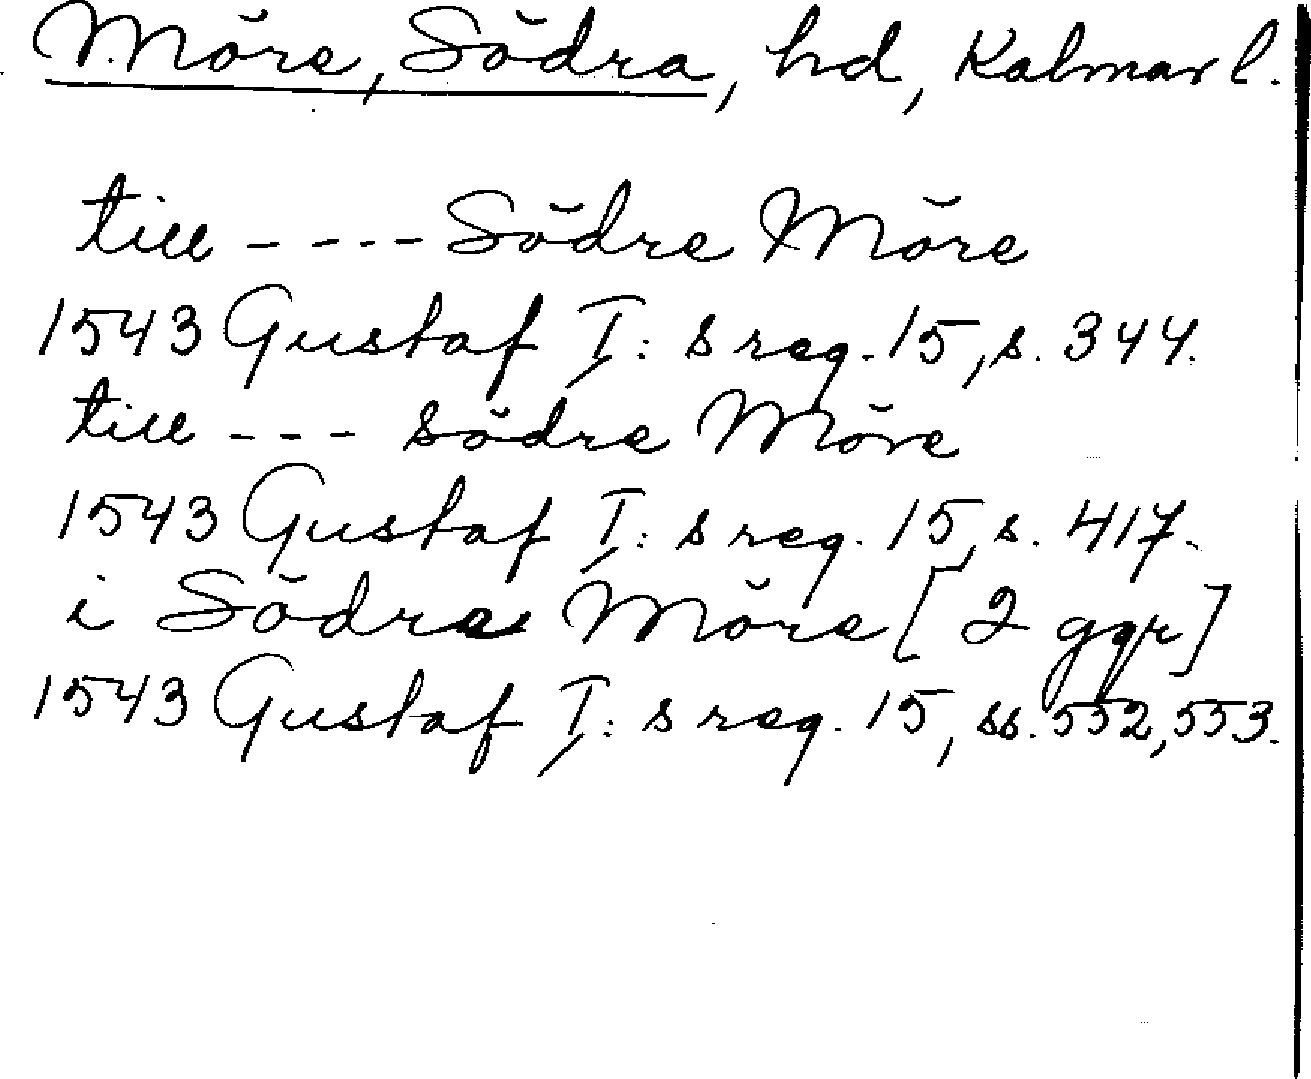 Möre, Södra, hd, Kalmar l.
till ----- Södre Möre
1543 Gustaf I: s reg. 15, s. 344.
till --- södre Möre
1543 Gustaf I: s reg. 15, s. 417.
i Södre Möre [2 ggr]
1543 Gustaf I: s reg. 15, ss. 552, 553.